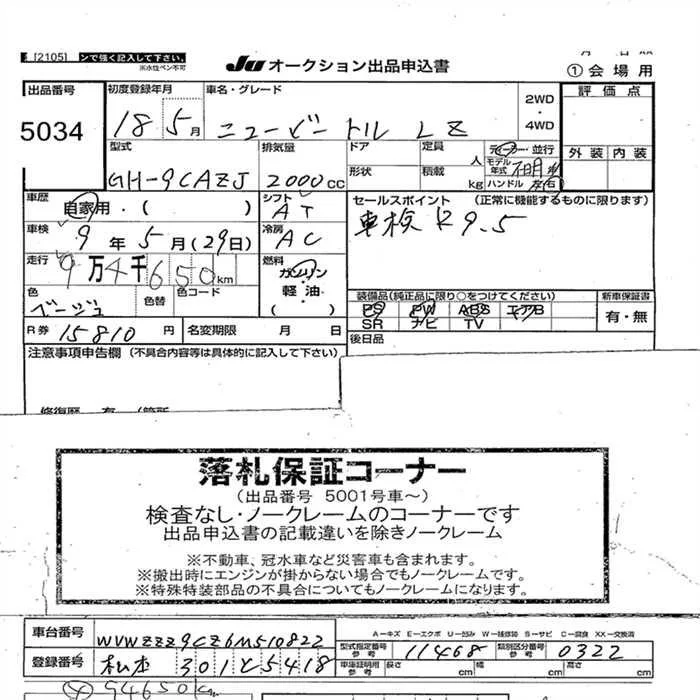 [2105] ンで強く記入して下さい.
※水性ペン不可
JU オークション出品申込書
① 会場用
出品番号 5034
初度登録年月 18 5月
車名・グレード ニュービートル LZ
2WD・4WD
評価点
外装 内装
型式 GH-9CAZJ
排気量 2000cc
ドア
形状
定員 人
積載 kg
ディーラー・並行
モデル年式 不明
ハンドル 左右
車歴 自家用・( )
シフト AT
セールスポイント (正常に機能するものに限ります)
車検 R9.5
車検 9年5月(29日)
冷房 AC
走行 9万4千650km
燃料 ガソリン 軽油 ( )
色 ベージュ
色替
色コード
装備品(純正品に限り○をつけてください)
PS PW ABS エアB
SR ナビ TV
新車保証書 有・無
R券 15810円
名変期限 月 日
後日品
注意事項申告欄 (不具合内容等は具体的に記入して下さい)
落札保証コーナー
(出品番号 5001号車~)
検査なし・ノークレームのコーナーです
出品申込書の記載違いを除きノークレーム
※不動車、冠水車など災害車も含まれます。
※搬出時にエンジンが掛からない場合でもノークレームです。
※特殊特装部品の不具合についてもノークレームになります。
車台番号 WVWZZZ9CZ6M510822
A-キズ E-エクボ U-凹み W-補修跡 S-サビ C-腐食 XX-交換済
型式指定番号 参考 11468
類別区分番号 参考 0322
登録番号 松本 301と5418
車庫証明用 参考 長さ cm 幅 cm 高さ cm
94650km